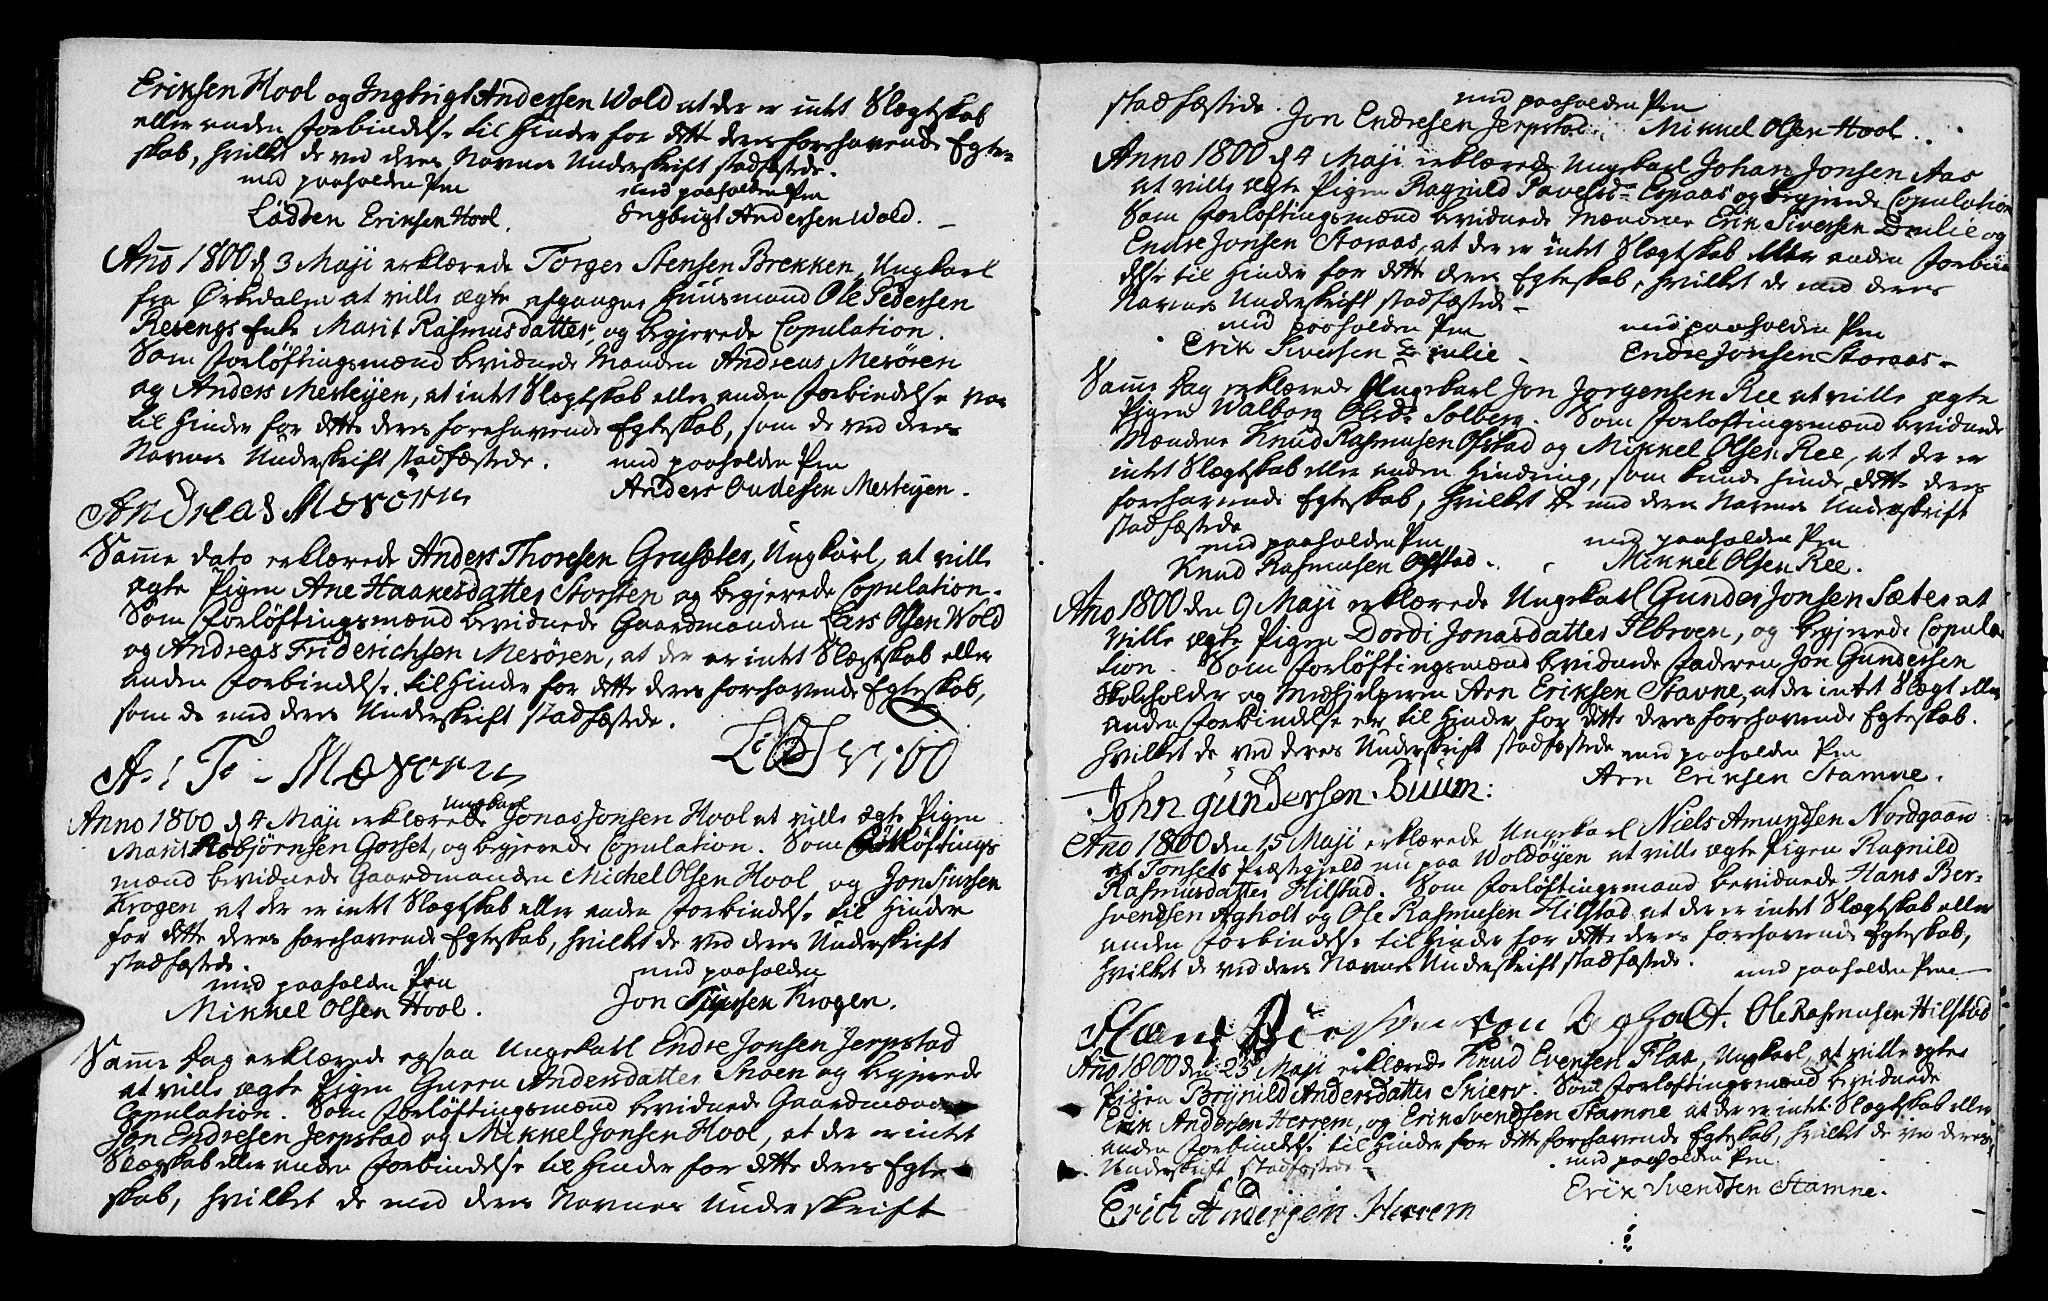 Eriksen Hool og Ingbrigt Andersen Wold at der er intet Slægtskab
eller anden Forbindelse til Hinder for dette deres forehavende Egte-
skab, hvilket de ved deres Navnes Underskrift stadfæstede.
med paaholden Pen med paaholden Pen
Lådden Eriksen Hool. Engbrigt Andersen Wold.
Año 1800 d 3 Maji erklærede Torger Stensen Brekken, Ungkarl
fra Ørkedalen at ville ægte afgangne Huusmand Ole Pedersen
Resengs Enke Marit Rasmusdatter, og begjerede Copulation.
Som Forløftingsmænd bevidnede Manden Andreas Mesøren
og Anders Mesteÿen, at intet Slægtskab eller anden Forbindelse var
til Hinder for dette deres forehavende Egteskab, som de ved deres
Navnes Underskrift stadfæstede. med paaholden Pen
Andreas Mesörn Anders Oudesen Mesteÿen.
Samme dato erklærede Anders Thoresen Grusæter, Ungkarl, at ville
ægte Pigen Ane Haakesdatter Storsten og begjerede Copulation.
Som Forløftingsmænd bevidnede Gaardmanden Lars Olsen Wold
og Andreas Friderichsen Mesøren, at der er intet Slægtskab eller
anden Forbindelse til Hinder for dette deres forehavende Egteskab,
som de med deres Underskrift stadfæstede.
Mesörn
Anno 1800 d 4 Maji erklærede Ungkarl Jonas Jonsen Hool at ville ægte Pigen
Marit Asbjørnsen Gorset, og begjerede Copulation. Som Forløftings
mænd bevidnede Gaardmanden Michel Olsen Hool og Jon Sjursen
Krogen at der er intet Slægtskab eller anden Forbindelse til Hinder
for dette deres forehavende Egteskab, hvilket de ved deres Underskrift
stadfæstede.
med paaholden Pen med paaholden
Mikkel Olsen Hool. Jon Sjursen Krogen.
Samme Dag erklærede ogsaa Ungekarl Endre Jonsen Jerpstad
at ville ægte Pigen Guren Andersdatter Snoen og begjerede
Copulation. Som Forløftingsmænd bevidnede Gaardmændene
Jon Endresen Jerpstad og Mikkel Jonsen Hool, at der er intet
Slægskab eller anden Forbindelse til Hinder for dette deres Egte
skab, hvilket de med deres Navnes Underskrift
stadfæstede. med paaholden Pen
Jon Endresen Jerpstad. Mikkel Olsen Hool.
Anno 1800 d 4 Maji erklærede Ungekarl Johan Jonsen Aas
at ville ægte Pigen Ragnild Povelsd. Espaas og begjerede Copulation
Som Forløftingsmænd bevidnede Mændene Erik Siversen Drulie og
Endre Jonsen Storaas, at der er intet Slægtskab eller anden Forbin
delse til Hinder for dette deres Egteskab, hvilket de med deres
Navnes Underskrift stadfæstede
med paaholden Pen med paaholden Pen
Erik Siversen Drulie Endre Jonsen Storaas
Samme Dag erklærede Ungekarl Jon Jørgensen Ree at ville ægte
Pigen Walborg Olsd. Solberg. Som Forløftingsmænd bevidnede
Mændene Knud Rasmusen Ofstad og Mikkel Olsen Ree, at der er
intet Slægtskab eller anden Hindring, som kunde hindre dette deres
forehavende Egteskab, hvilket de med deres Navnes Underskrift
stadfæstede
med paaholden Pen med paaholden Pen
Knud Rasmusen Ofstad. Mikkel Olsen Ree.
Año 1800 den 9 Maji erklærede Ungekarl Gunder Jonsen Sæter at
ville ægte Pigen Dordi Jonasdatter Ilbroen, og begjerede Copula
tion. Som Forløftingsmænd bevidnede Faderen Jon Gundersen
Skoleholder og Medhjelperen Arn Eriksen Stavne, at der intet Slægt eller
anden Forbindelse er til Hinder for dette deres forehavende Egteskab.
hvilket de ved deres Underskrift stadfæstede med paaholden Pen
John gundersen Buum: Arn Eriksen Stamne.
Año 1800 den 15 Maji erklærede Ungekarl Niels Amundsen Nordgaan
af Tonsets Præstegjeld nu paa Woldøÿen at ville ægte Pigen Ragnild
Rasmusdatter Hilstad. Som Forløftingsmænd bevidnede Hans Ber-
svendsen Agholt og Ole Rasmusen Hilstad at der er intet Slægtskab eller
anden Forbindelse til Hinder for dette deres forehavende Egteskab,
hvilket de ved deres Navnes Underskrift stadfæstede. med paaholden Pen
Hans Agholt. Ole Rasmusen Hilstad
Año 1800 den 23 Maji erklærede Knud Evensen Flaa, Ungkarl, at ville ægte
Pigen Brÿnild Andersdatter Skierv. Som Forløftingsmænd bevidnede
Erik Andersen Herrem, og Erik Svendsen Stamne at der er intet Slægtskab eller
anden Forbindelse til Hinder for dette forehavende Egteskab, hvilket de ved deres
Underskrift stadfæstede. med paaholden Pen
Erick Andersen Herrem Erik Svendsen Stamne.